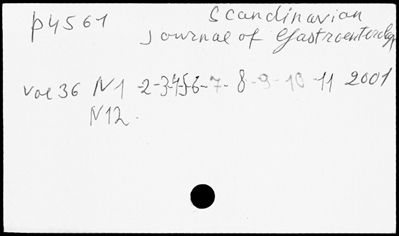 p4561 Scandinavian
Journal of Gastroenterology
vol 36 N1 -2-3-4-5-6-7-8-9-10-11 2001
N12.